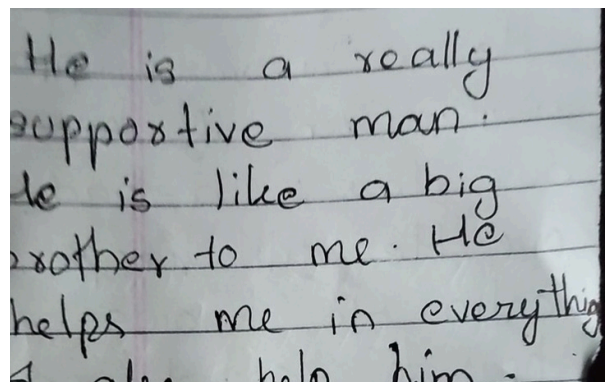 He is a really
supportive man.
He is like a big
brother to me. He
helps me in everything
I also help him.